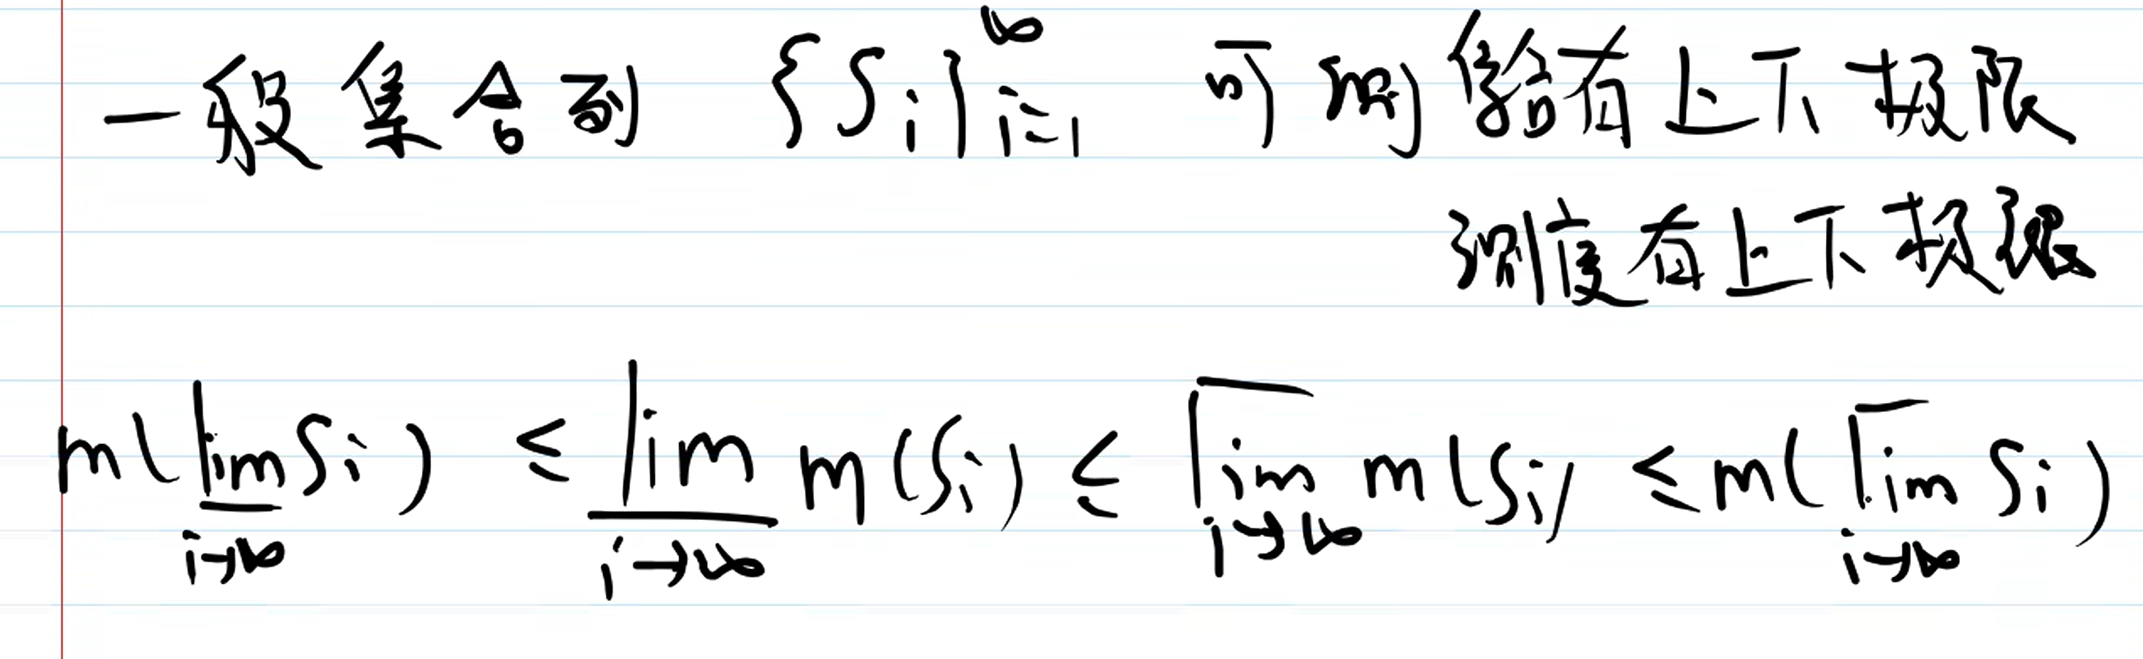 一般集合列 {Sᵢ}ᵢ₌₁^∞ 可测 集合有上下极限
测度有上下极限
m(\underline{lim}_{i→∞} Sᵢ) ≤ \underline{lim}_{i→∞} m(Sᵢ) ≤ \overline{lim}_{i→∞} m(Sᵢ) ≤ m(\overline{lim}_{i→∞} Sᵢ)